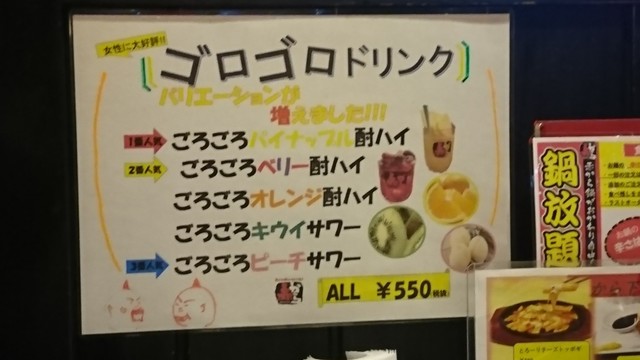 女性に大好評!!
ゴロゴロドリンク
バリエーションが
増えました!!!
1番人気 ごろごろパイナップル酎ハイ
2番人気 ごろごろベリー酎ハイ
ごろごろオレンジ酎ハイ
ごろごろキウイサワー
3番人気 ごろごろピーチサワー
ALL ¥550(税抜)
鍋放題